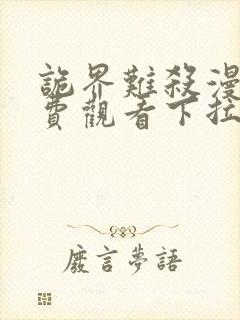 詭界難殺漫
費觀看下拉
廢言夢語